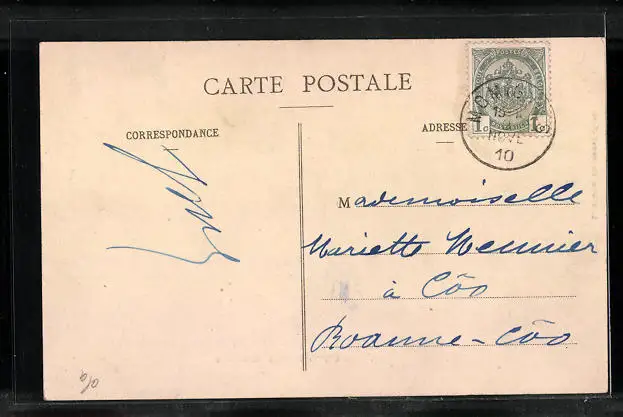 CARTE POSTALE
CORRESPONDANCE
ADRESSE
1c 1c
NOVE
10
Mademoiselle
Mariette Meunier
à Côo
Roanne-Côo